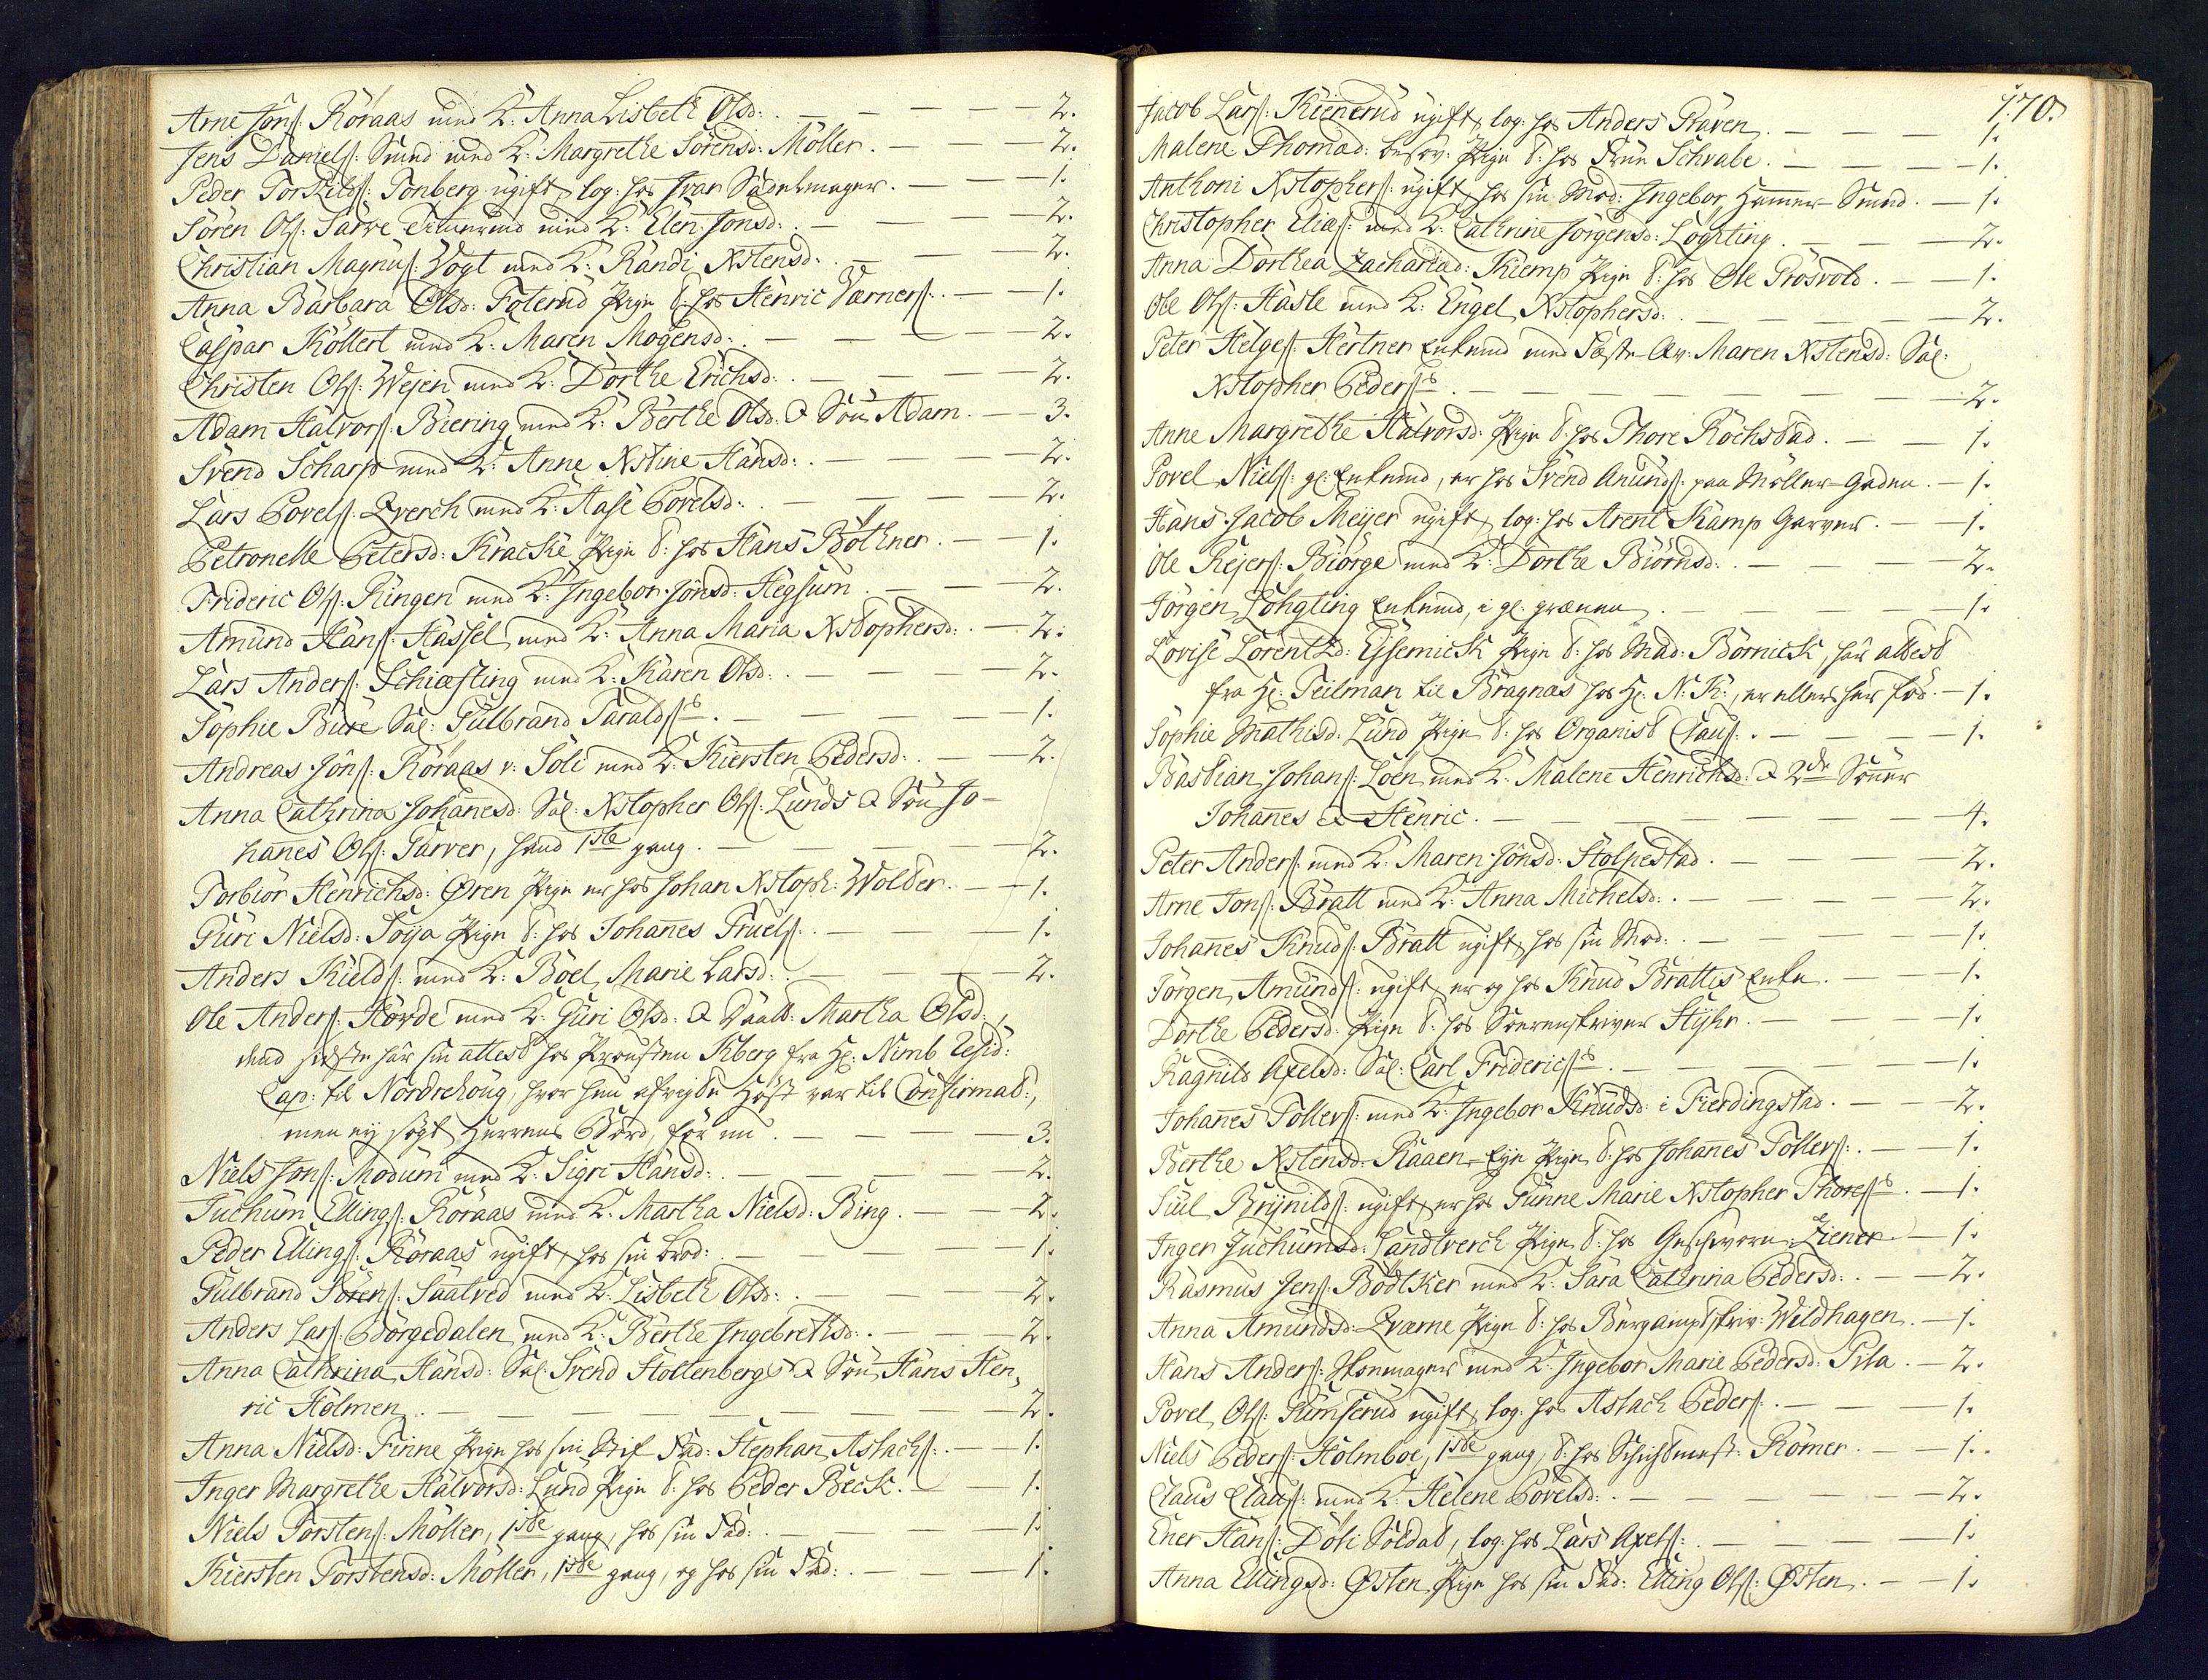 Arne Jöns: Röraas med K: Anna Lisbeth Olsd: — — — — 2.
Jens Daniels: Smed med K: Margrethe Sörensd: Möller. — — — 2.
Peder Torkilds: Tonberg ugift, log: hos Ivar Sadelmager. — — — 1.
Sören Ols: Sarve med K: Elen Jonsd: — — — 2.
Christian Magnus: Vogt med K: Randi Xstensd: — — — 2.
Anna Barbara Olsd: Foterud Pige t: hos Henric Værners: — — 1.
Caspar Köllert med K: Maren Mogensd: — — — 2.
Christen Ols: Wejen med K: Dorthe Erichsd: — — — 2.
Adam Halvors: Biering med K: Berthe Olsd: & Sön Adam. — 3.
Svend Scharp med K: Anne Xstine Hansd: — — — 2.
Lars Povels: Qverch med K: Aase Povelsd: — — — 2.
Petronelle Petersd: Kracke Pige t: hos Hans Böthner. — — 1.
Frideric Ols: Ringen med K: Ingebor Jönsd: Hegsum — — 2.
Amund Hans: Hassel med K: Anna Maria Xstophersd: — 2.
Lars Anders: Schiæfting med K: Karen Olsd: — — — 2.
Sophie Bure Sal: Gulbrand Taralds:s — — — — 1.
Andreas Jöns: Röraas v: Soli med K: Kiersten Pedersd: — — 2.
Anna Cathrina Johanesd: Sal: Xstopher Ols: Lunds & Sön Jo-
hanes Ols: Garver, hand 1ste gang. — — — — 2.
Torbiör Henrichsd: Øren Pige er hos Johan Xstoph: Wolder. — — 1.
Guri Nielsd: Toya Pige t: hos Johanes Truels: — — — 1.
Anders Kields: med K: Boel Marie Larsd: — — — 2.
Ole Anders: Hovde med K: Guri Olsd: & Daatt: Martha Olsd:,
dend sidste har sin attest hos Provsten Kberg fra Hr: Nimb Resid:
Cap: til Nordrehoug, hvor hun afvigte Høst var til Confirmat:,
men ey søgt Herrens Bord, før nu. — — — 3.
Niels Jons: Modum med K: Sigri Hansd: — — — 2.
Juchum Ellings: Röraas med K: Martha Nielsd: Bing. — — 2.
Peder Ellings: Röraas ugift, hos sin brod: — — — 1.
Gulbrand Sörens: Saatved med K: Lisbeth Olsd: — — — 2.
Anders Lars: Börgedalen med K: Berthe Ingebrethsd: — — 2.
Anna Cathrina Hansd: Sal: Svend Stoltenbergs & Sön Hans Hen,
ric Holmen. — — — — — — 2.
Anna Nielsd: Finne Pige hos sin Stif Fad: Stephan Astachs: — 1.
Inger Margrethe Halvorsd: Lund Pige t: hos Peder Beck. — — 1.
Niels Torstens: Möller, 1ste gang, hos sin Fad: — — — 1.
Kiersten Torstensd: Möller, 1ste gang, og hos sin Fad: — — — 1.
170.
Jacob Lars: Kienerud ugift, log: hos Anders Graven. — — — 1.
Malene Thomasd: Pige t: hos Frue Schrabe. — — — 1.
Anthoni Xstophers: ugift, hos sin Mod: Ingebor Hamer-Smed. — 1.
Christopher Elias: med K: Cathrine Jörgensd: Löghting. — — — 2.
Anna Dorthea Zachariasd: Kiemp Pige t: hos Ole Grösvold. — — 1.
Ole Ols: Hasle med K: Engel Xstophersd: — — — — 2.
Peter Helges: Hertner Enkemd med Fæste Qv: Maren Xstensd: Sal:
Xstopher Peders:s — — — — — — 2.
Anne Margrethe Halvorsd: Pige t: hos Thore Rochstad. — — 1.
Povel Niels: gl: Enkemd, er hos Svend Anunds: paa Möller-Gaden. — 1.
Hans Jacob Meijer ugift, log: hos Arent Kamp Garver. — — 1.
Ole Rejers: Biörge med K: Dorthe Biörnsd: — — — 2.
Jörgen Löhgting Enkemd, i gl: — — — — 1.
Lovise Lorentzd: Eisemick Pige t: hos Mad: Börnick, har attest
fra Hr: Teilman til Bragnæs hos Hr: N: K:, er ellers her fød. — 1.
Sophie Mathisd: Lund Pige t: hos Organist Claus: — — — 1.
Bastian Johans: Loen med K: Malene Henrichsd: & 2de Sönner
Johanes & Henric. — — — — — — 4.
Peter Anders: med K: Maren Jönsd: Stolpestad. — — — 2.
Arne Jons: Bratt med K: Anna Michelsd: — — — — 2.
Johanes Knuds: Bratt ugift, hos sin Mod: — — — 1.
Jörgen Amunds: ugift, er og hos Knud Brattis Enke. — — 1.
Dorthe Pedersd: Pige t: hos Sorenskriver Stÿhr. — — — 1.
Ragnild Axelsd: Sal: Carl Friderics:s — — — — 1.
Johanes Tollers: med K: Ingebor Knudsd: i Fierdingstad. — — 2.
Berthe Xstensd: Raaen-Eye Pige t: hos Johanes Tollers: — — 1.
Juul Brÿnilds: ugift, er hos Gunne Marie Xstopher Thores:s — 1.
Inger Juchumsd: Landtverch Pige t: hos Geschworn: Ziener — 1.
Rasmus Jens: Bödtker med K: Sara Cathrina Pedersd: — — 2.
Anna Amundsd: Qværne Pige t: hos Bergamptskriv: Wildhagen. — 1.
Hans Anders: med K: Ingebor Marie Pedersd: Pila. — 2.
Povel Ols: Gumserud ugift, log: hos Astach Peders: — — 1.
Niels Peders: Holmboe, 1ste gang, t: hos Schichtmest: Römer. — — 1.
Claus Claus: med K: Helene Povelsd: — — — — 2.
Ener Hans: Döli Soldat, log: hos Lars Axels: — — — 1.
Anna Ellingsd: Østen Pige hos sin Fad: Elling Ols: Østen. — — 1.